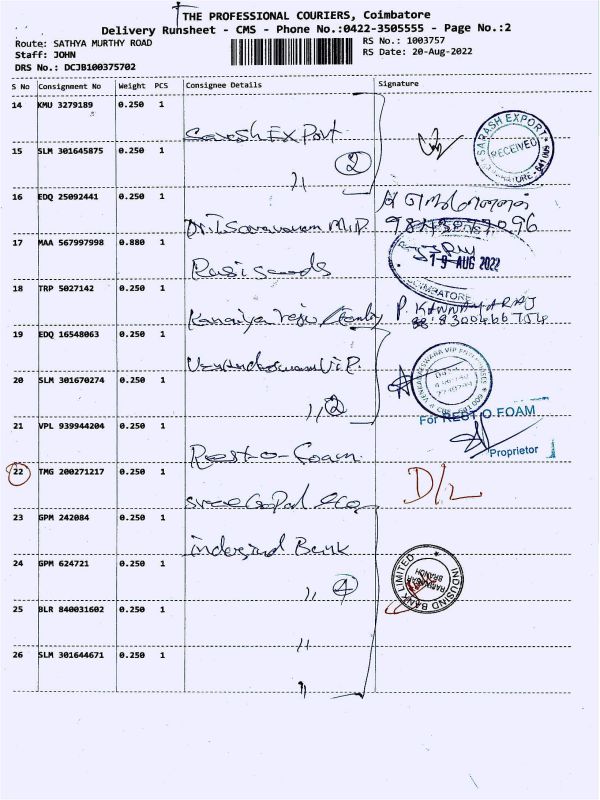 THE PROFESSIONAL COURIERS, Coimbatore
Delivery Runsheet - CMS - Phone No.:0422-3505555 - Page No.:2
Route: SATHYA MURTHY ROAD
Staff: JOHN
DRS No.: DCJB100375702
RS No.: 1003757
RS Date: 20-Aug-2022
S No Consignment No Weight PCS Consignee Details Signature
14 KMU 3279189 0.250 1
Saresh Export
SARASH EXPORT
RECEIVED
15 SLM 301645875 0.250 1
,, 2
16 EDQ 25092441 0.250 1
17 MAA 567997998 0.880 1
19 AUG 2022
COIMBATORE
18 TRP 5027142 0.250 1
P. KANNAYARAJ
19 EDQ 16548063 0.250 1
20 SLM 301670274 0.250 1
,, 2
21 VPL 939944204 0.250 1
Rest-O-Foam
For REST O FOAM
Proprietor
22 TMG 200271217 0.250 1
Sree Gopal &co
D/L
23 GPM 242084 0.250 1
indusind Bank
24 GPM 624721 0.250 1
,, 4
INDUSIND BANK LIMITED
BRANCH
25 BLR 840031602 0.250 1
,,
26 SLM 301644671 0.250 1
,,